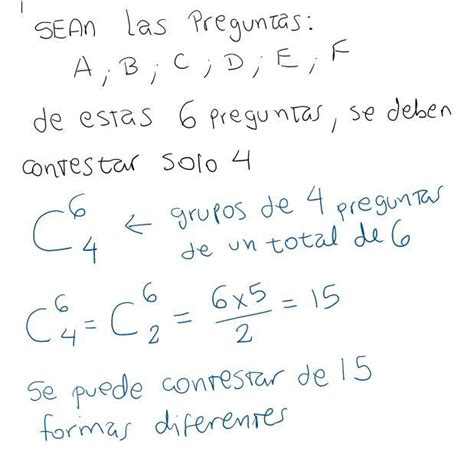 SEAN las Preguntas:
A ; B ; C ; D ; E ; F
de estas 6 preguntas, se deben
contestar solo 4
C⁶₄ ← grupos de 4 preguntas
de un total de 6
C⁶₄ = C⁶₂ = 6x5/2 = 15
Se puede contestar de 15
formas diferentes